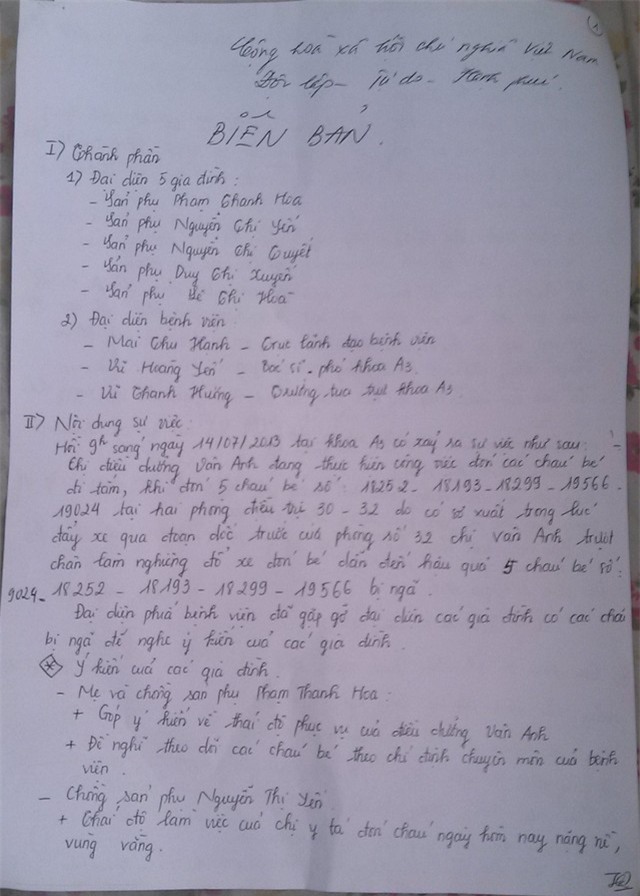 1
Cộng hoà xã hội chủ nghĩa Việt Nam
Độc lập - Tự do - Hạnh phúc.
BIÊN BẢN.
I) Thành phần
1) Đại diện 5 gia đình:
- Sản phụ Phạm Thanh Hoa
- Sản phụ Nguyễn Thị Yến
- Sản phụ Nguyễn Thị Quyết
- Sản phụ Duy Thị Xuyến
- Sản phụ Thị Hoà
2) Đại diện bệnh viện
- Mai Thu Hạnh - Trực lãnh đạo bệnh viện
- Vũ Hoàng Yến - Bác sĩ - phó khoa A3
- Vũ Thanh Hường - Trưởng tua trực khoa A3
II) Nội dung sự việc:
Hồi 9h sáng ngày 14/07/2013 tại khoa A3 có xảy ra sự việc như sau: -
Chị điều dưỡng Vân Anh đang thực hiện công việc đón các cháu bé
đi tắm, khi đón 5 cháu bé số: 18252 - 18193 - 18299 - 19566 -
19024 tại hai phòng điều trị 30 - 32 do có sơ xuất trong lúc
đẩy xe qua đoạn dốc trước cửa phòng số 32 chị Vân Anh trượt
chân làm nghiêng đổ xe đón bé dẫn đến hậu quả 5 cháu bé số:
9024 - 18252 - 18193 - 18299 - 19566 bị ngã.
Đại diện phía bệnh viện đã gặp gỡ đại diện các gia đình có các cháu
bị ngã để nghe ý kiến của các gia đình.
* Ý kiến của các gia đình.
- Mẹ và chồng sản phụ Phạm Thanh Hoa:
+ Góp ý kiến về thái độ phục vụ của điều dưỡng Vân Anh
+ Đề nghị theo dõi các cháu bé theo chỉ định chuyên môn của bệnh
viện.
- Chồng sản phụ Nguyễn Thị Yến
+ Thái độ làm việc của chị y tá đón cháu ngày hôm nay nặng nề,
vùng vằng.